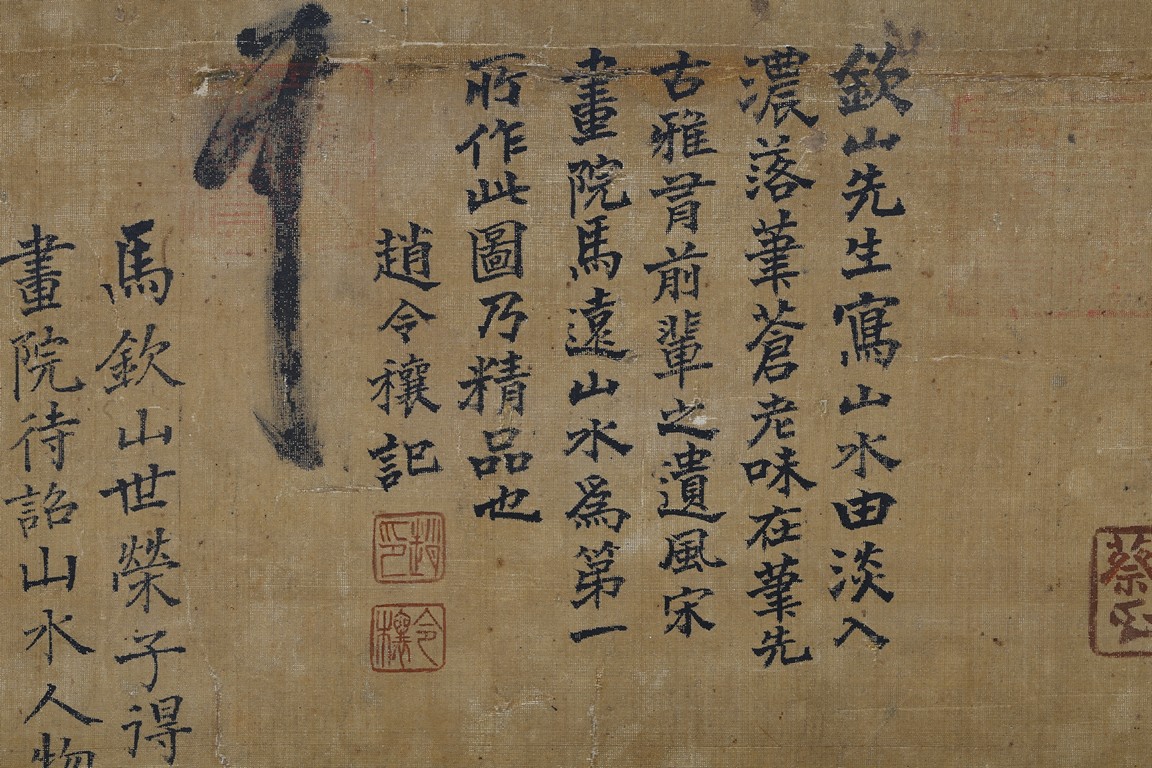 欽山先生寫山水由淡入
濃落筆蒼老味在筆先
古雅有前輩之遺風宋
畫院馬遠山水為第一
所作此圖乃精品也
趙令穰記
趙印
令穰
馬欽山世榮子得
畫院待詔山水人物
蔡